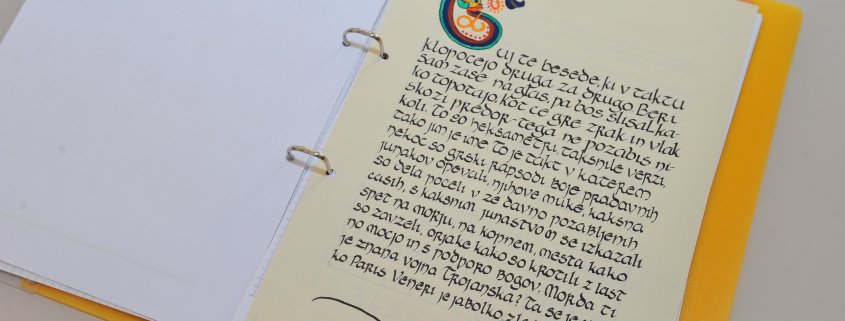 Čuj te besede, ki v taktu
klopočejo druga za drugo Beri
sam zase na glas, pa boš slišal, ka-
ko topotajo, kot če gre zrak in vlak
skozi predor-tega ne pozabiš ni-
koli. To so heksametri, takšnile verzi,
tako jim je ime To je takt v katerem
nekoč so grški rapsodi boje pradavnih
junakov opevali, njihove muke, kakšna
so dela počeli v že davno pozabljenih
časih, s kakšnim junaštvom se izkazali
spet na morju, na kopnem, mesta kako
so zavzeli, orjake kako so krotili z last
no močjo in s podporo bogov. Morda ti
je znana vojna Trojanska? Ta se je
ko Paris Veneri je jabolko